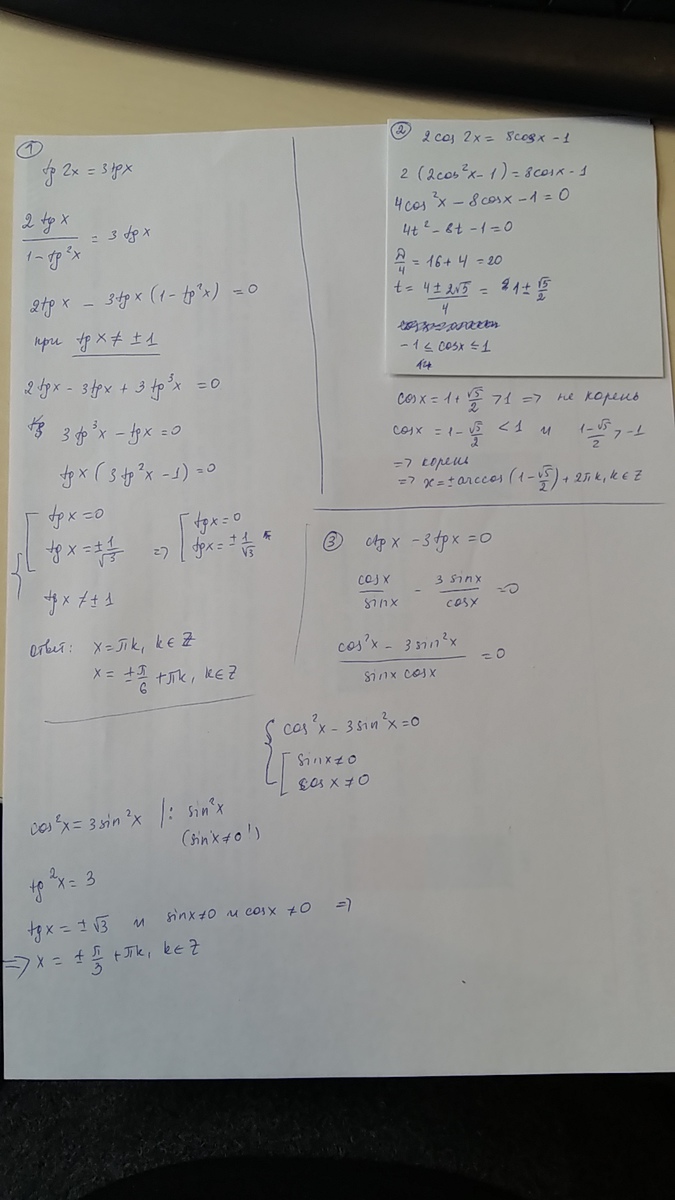 ①
tg 2x = 3tgx
2 tg x / 1 - tg²x = 3 tg x
2tgx - 3tgx (1 - tg²x) = 0
при tg x ≠ ± 1
2tgx - 3tgx + 3tg³x = 0
3tg³x - tgx = 0
tgx (3tg²x - 1) = 0
{ [ tgx = 0
tgx = ± 1/√3 => [ tgx = 0
tgx = ± 1/√3
tgx ≠ ± 1
ответ: x = πk, k ∈ Z
x = ± π/6 + πk, k ∈ Z
② 2cos 2x = 8cosx - 1
2 (2cos²x - 1) = 8cosx - 1
4cos²x - 8cosx - 1 = 0
4t² - 8t - 1 = 0
D/4 = 16 + 4 = 20
t = 4 ± 2√5 / 4 = 1 ± √5/2
-1 ≤ cosx ≤ 1
cosx = 1 + √5/2 > 1 => не корень
cosx = 1 - √5/2 < 1 и 1-√5/2 > -1
=> корень
=> x = ± arccos (1 - √5/2) + 2πk, k ∈ Z
③ ctg x - 3tgx = 0
cosx / sinx - 3 sinx / cosx = 0
cos²x - 3sin²x / sinx cosx = 0
{ cos²x - 3sin²x = 0
[ sinx ≠ 0
cos x ≠ 0
cos²x = 3sin²x |: sin²x
(sinx ≠ 0!)
tg²x = 3
tgx = ± √3 и sinx ≠ 0 и cosx ≠ 0 =>
=> x = ± π/3 + πk, k ∈ Z